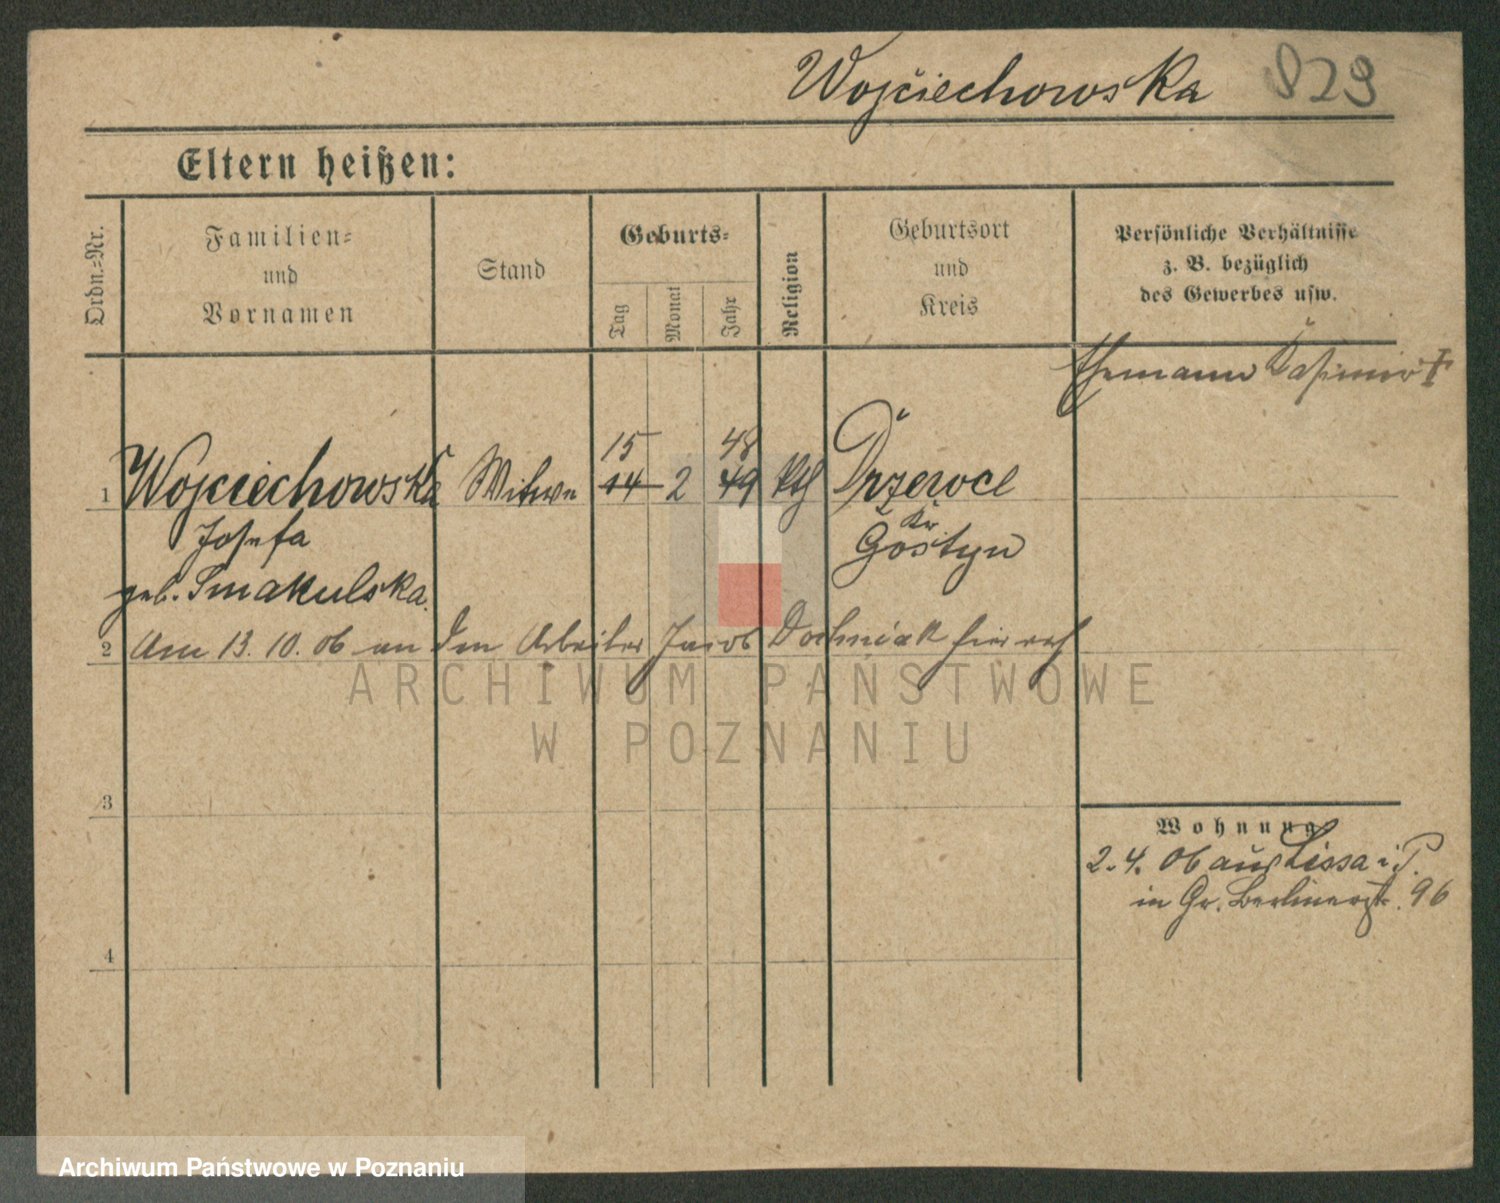 Wojciechowska 929
Eltern heißen:
Ordn.-Nr.
Familien-
und
Vornamen
Stand
Geburts-
Tag
Monat
Jahr
Religion
Geburtsort
und
Kreis
Persönliche Verhältnisse
z. B. bezüglich
des Gewerbes usw.
Ehemann Kasimir †
15 48
1 Wojciechowska Witwe 14 2 49 kth Drzewce
Josefa Kr
geb. Smakulska. Gostyn
2 Am 13. 10. 06 an den Arbeiter Jacob Dochniak hier verh
ARCHIWUM PAŃSTWOWE
W POZNANIU
3
Wohnung
2. 4. 06 aus Lissa i P.
in Gr. Berlinerstr. 96
4
Archiwum Państwowe w Poznaniu